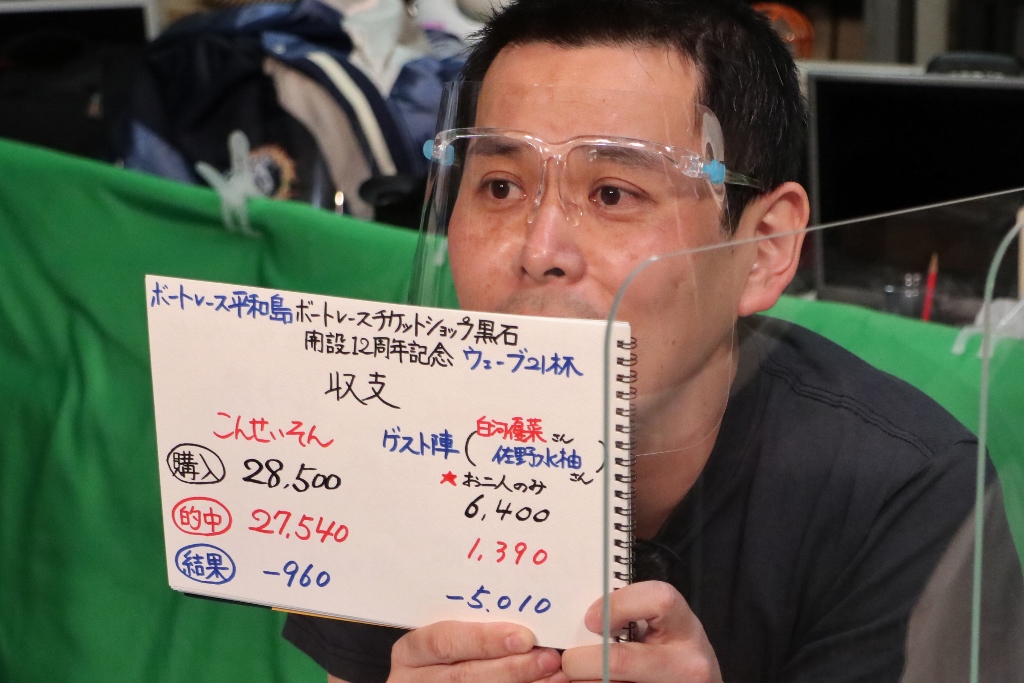 ボートレース平和島 ボートレースチケットショップ黒石
開設12周年記念 ウェーブ21杯
収支
こんせいそん
ゲスト陣 (白河優菜さん
佐野水柚さん)
★お二人のみ
購入 28,500 6,400
的中 27,540 1,390
結果 -960 -5,010